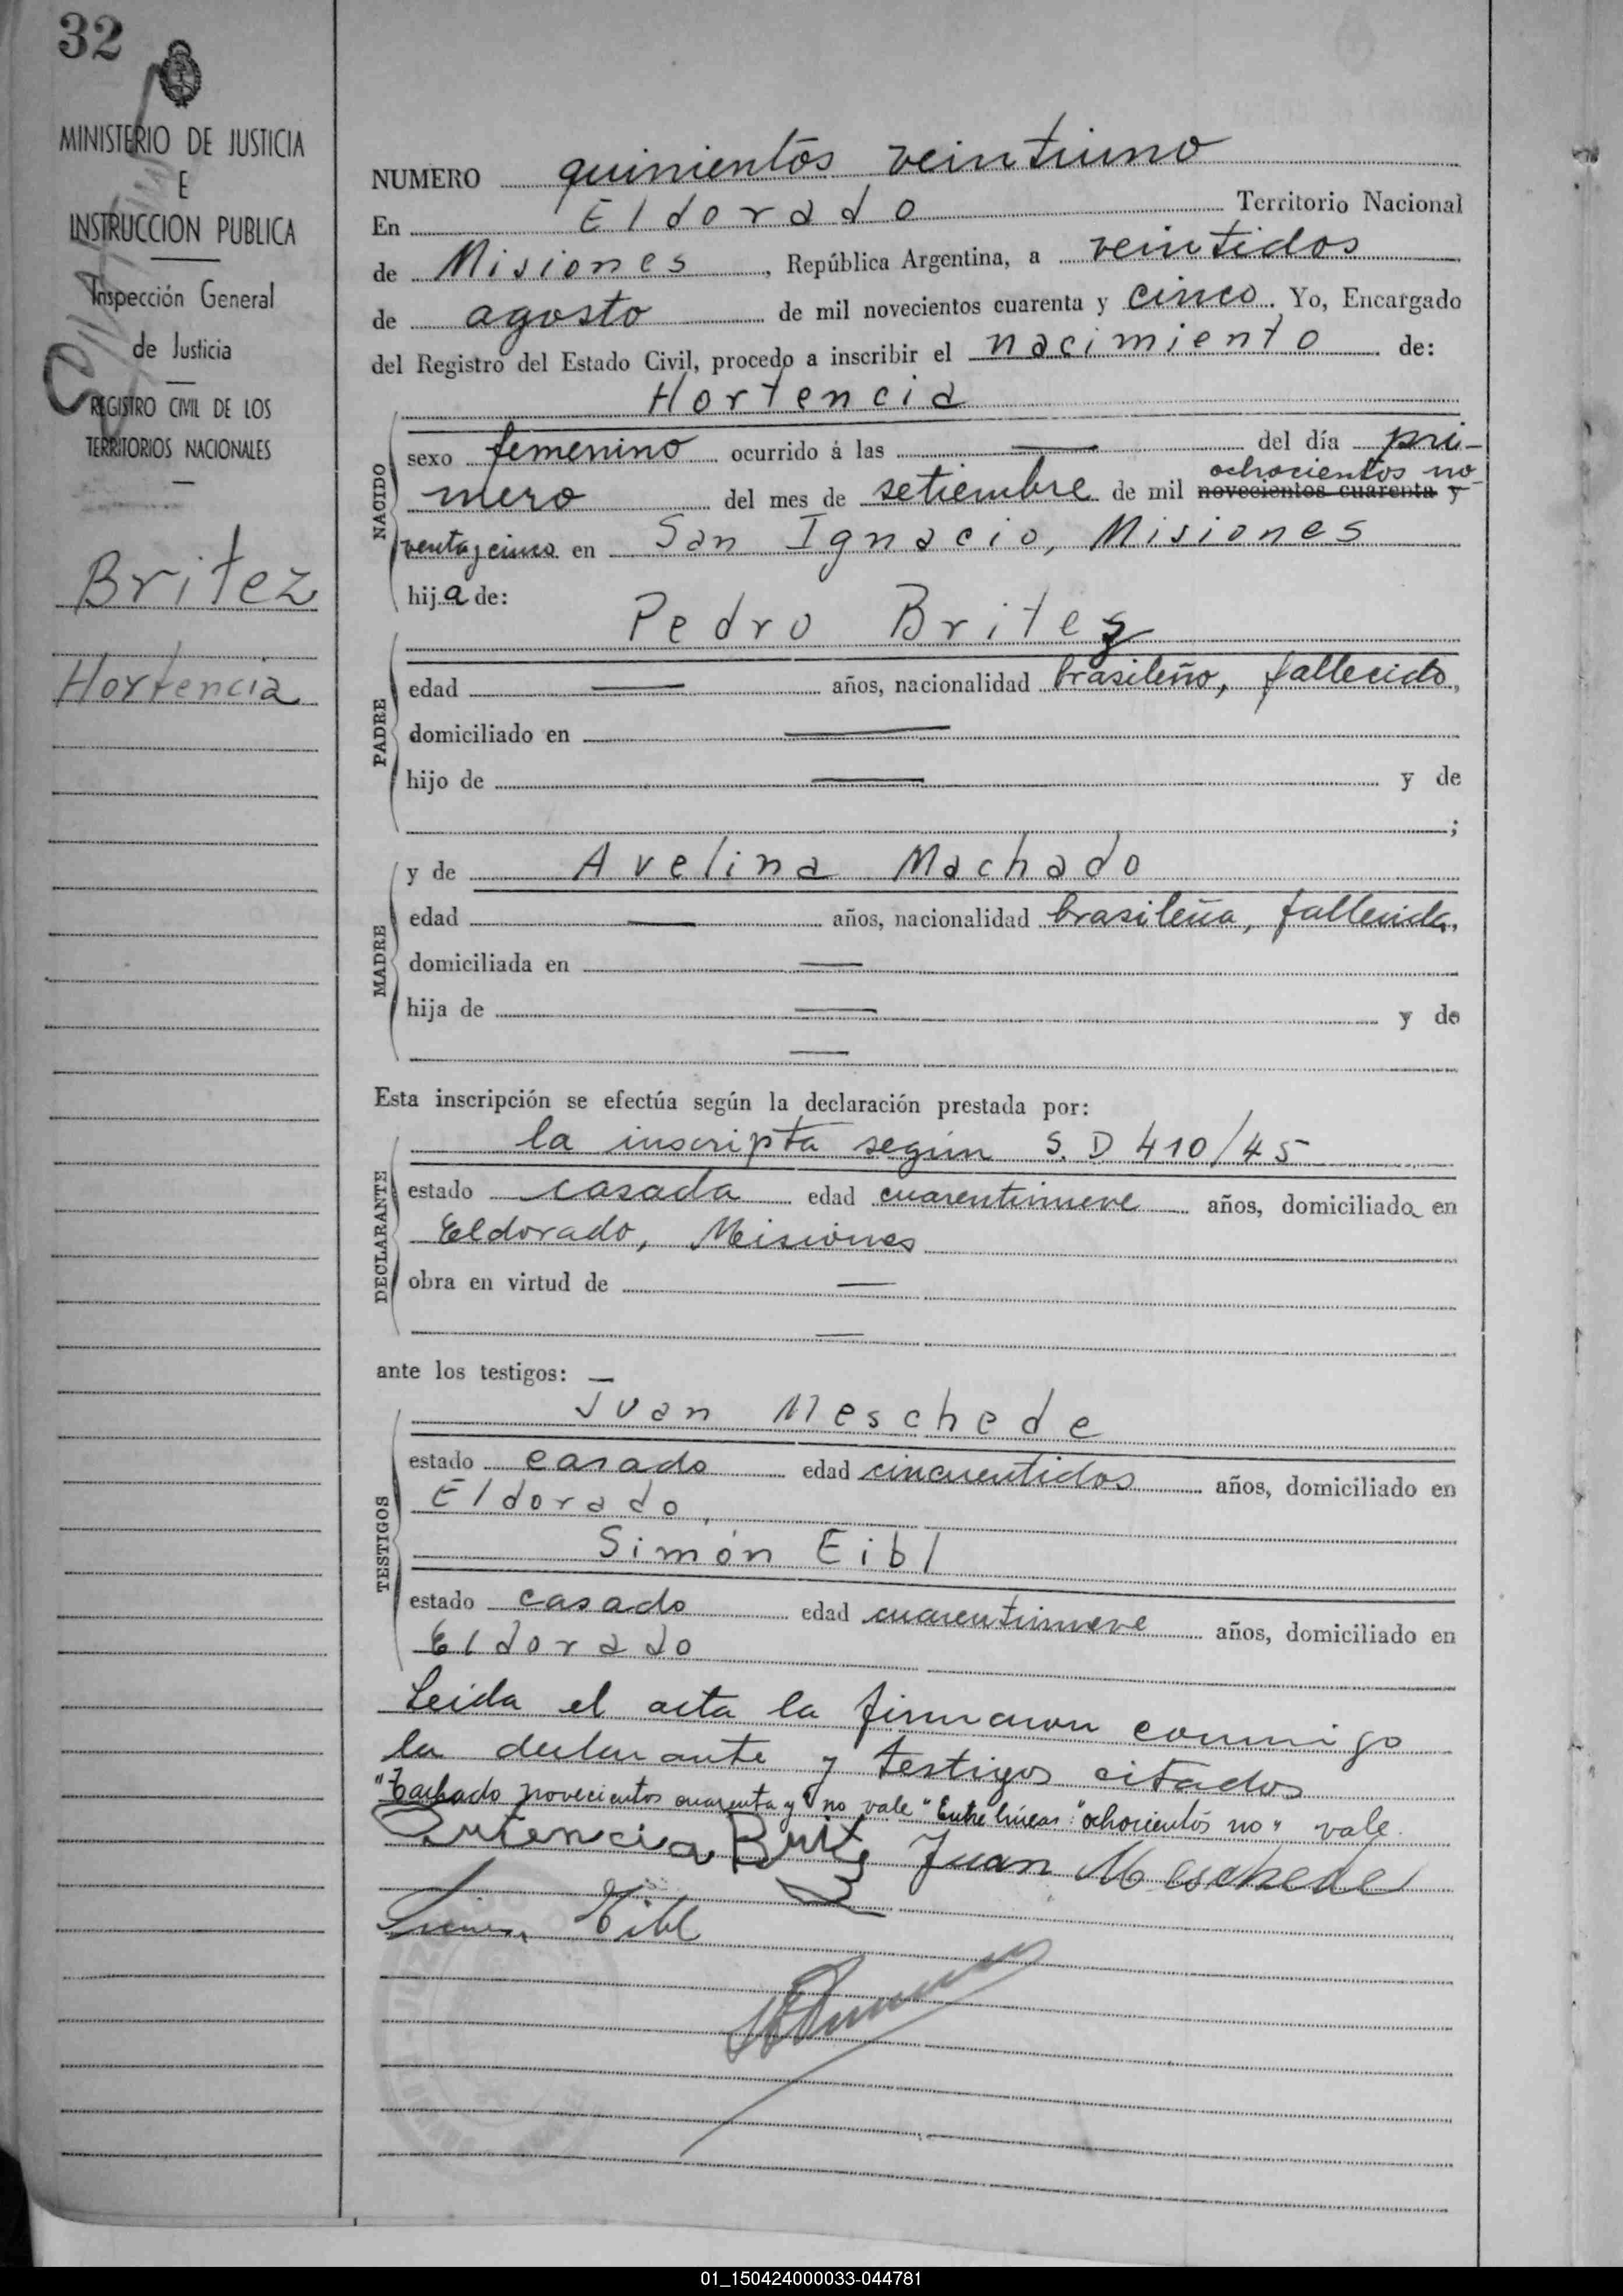 32
MINISTERIO DE JUSTICIA
E
INSTRUCCION PUBLICA
Inspección General
de Justicia
REGISTRO CIVIL DE LOS
TERRITORIOS NACIONALES
Britez
Hortencia
NUMERO quinientos veintiuno
En Eldorado Territorio Nacional
de Misiones, República Argentina, a veintidos
de agosto de mil novecientos cuarenta y cinco. Yo, Encargado
del Registro del Estado Civil, procedo a inscribir el nacimiento de:
Hortencia
NACIDO
sexo femenino ocurrido á las — del día pri-
ochocientos no-
mero del mes de setiembre de mil novecientos cuarenta y
venta y cinco en San Ignacio, Misiones
hija de:
Pedro Brites
PADRE
edad — años, nacionalidad brasileño, fallecido,
domiciliado en —
hijo de — y de
;
MADRE
y de Avelina Machado
edad — años, nacionalidad brasileña, fallecida,
domiciliada en —
hija de — y de
—
Esta inscripción se efectúa según la declaración prestada por:
la inscripta según S. D 410/45
DECLARANTE
estado casada edad cuarentinueve años, domiciliada en
Eldorado, Misiones
obra en virtud de —
—
ante los testigos: —
TESTIGOS
Juan Meschede
estado casado edad cincuentidos años, domiciliado en
Eldorado,
Simón Eibl
estado casado edad cuarentinueve años, domiciliado en
Eldorado
Leida el acta la firmaron conmigo
la declarante y testigos citados
"Tachado novecientos cuarenta y" no vale "Entre líneas: "ochocientos no" vale.
Juan Meschede
Simon Eibl
01_150424000033-044781